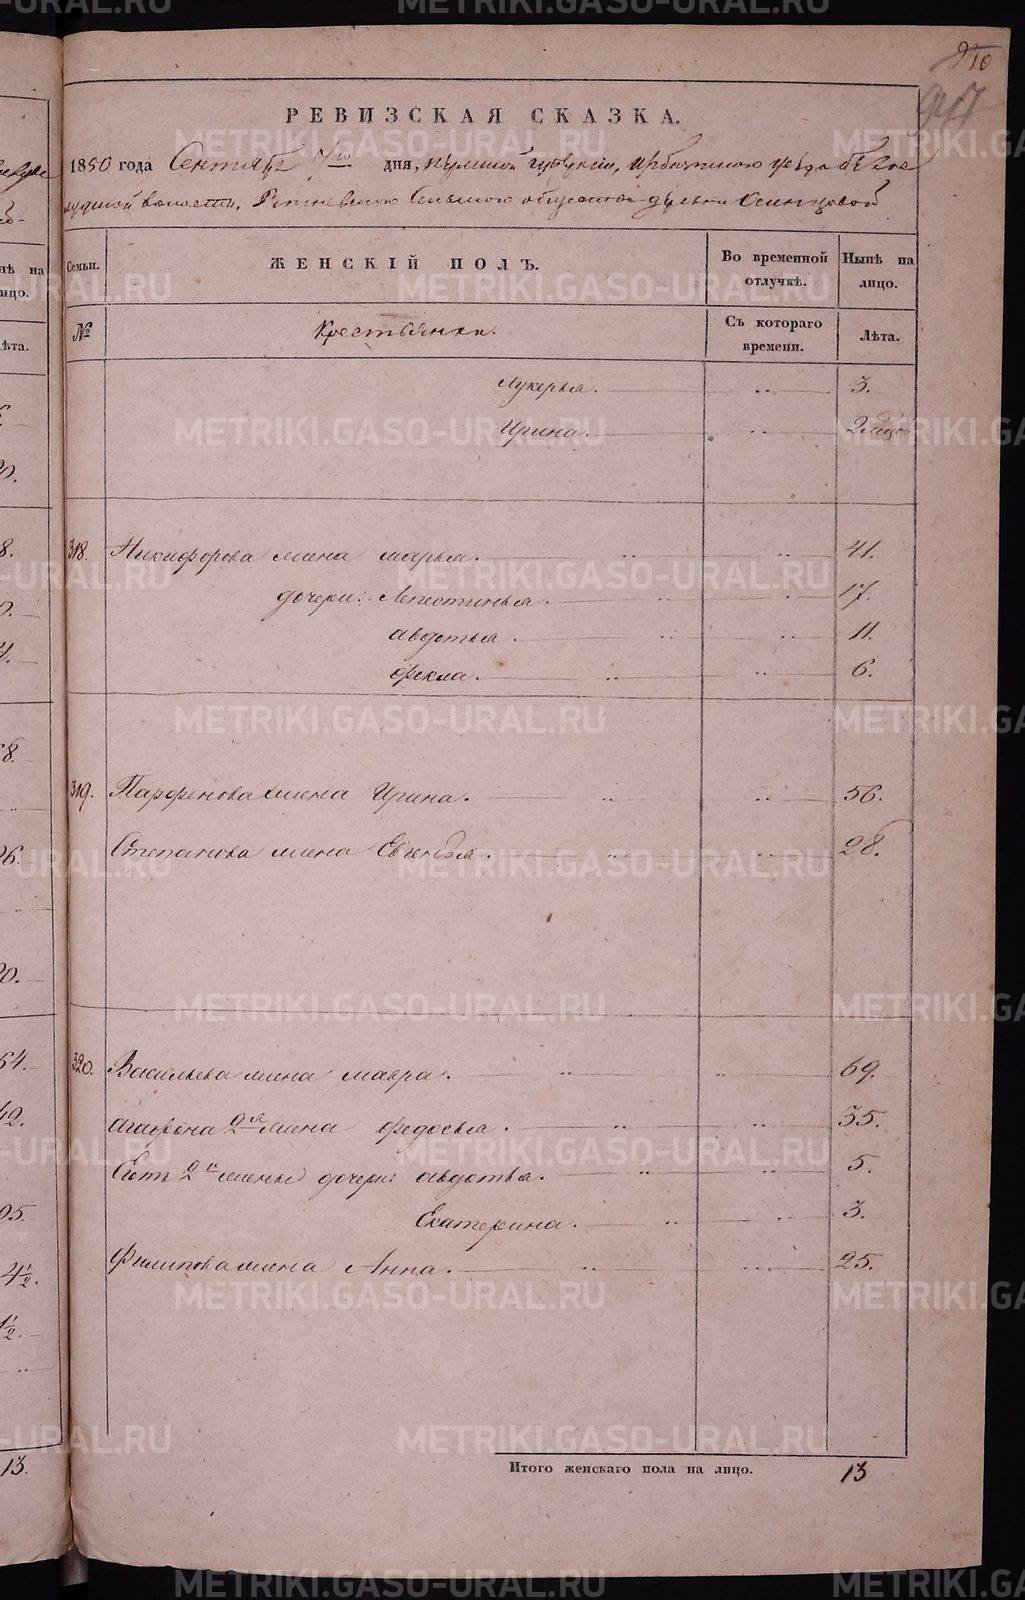 940
947
РЕВИЗСКАЯ СКАЗКА.
1850 года Сентября дня, Пермской губернии, Ирбитскаго уезда Бело
слудской волости, Ретневскаго Сельскаго общества деревни Осинцовой
Семьи. ЖЕНСКІЙ ПОЛЪ. Во временной отлучкѣ. Нынѣ на лицо.
№ Крестьянки. Съ котораго времени. Лѣта.
Лукерья. 3.
Ирина. 2
318. Никифорова жена Марья. 41.
дочери: Апестинья. 17.
Авдотья. 11.
Фекла. 6.
319. Парфенова жена Ирина. 56.
Степанова жена Евгенья. 28.
320. Васильева жена Мавра. 69.
Агафона 2я жена Федосья. 35.
2й жены дочери: Авдотья. 5.
Екатерина. 3.
Филипова жена Анна. 25.
Итого женскаго пола на лицо. 13
13.
METRIKI.GASO-URAL.RU